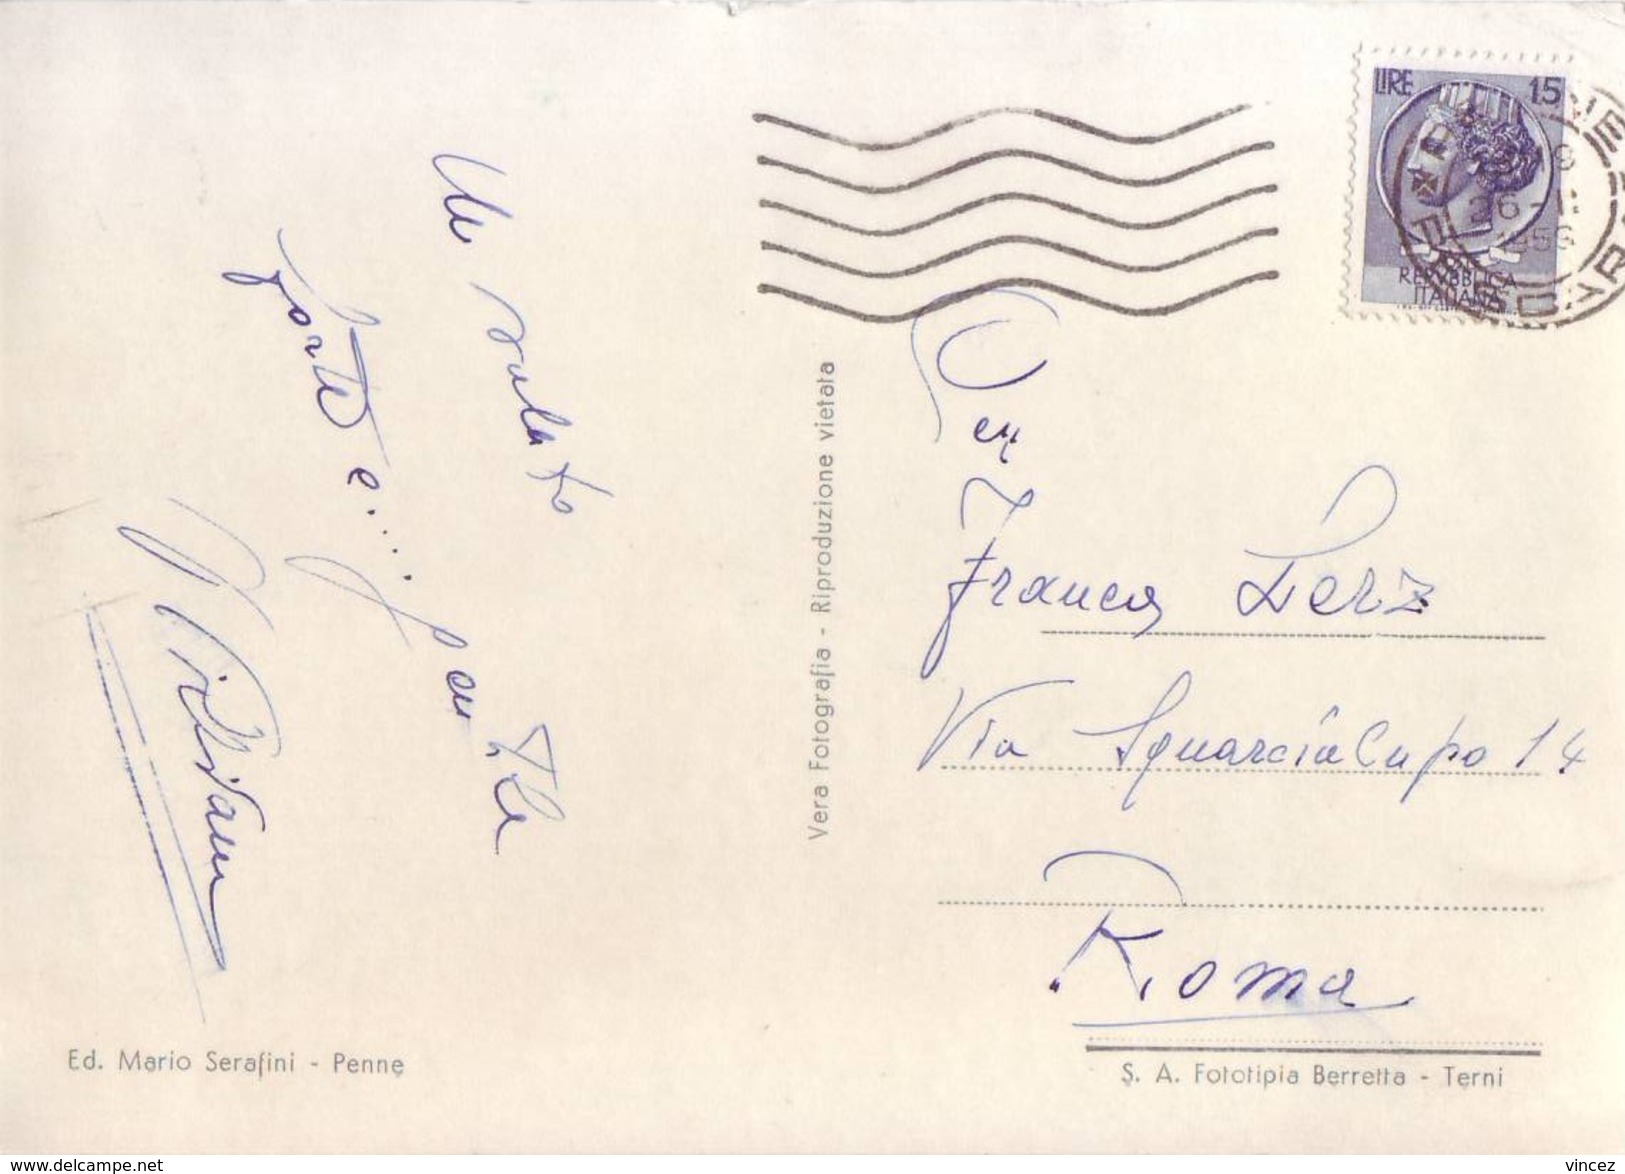 Un saluto
forte e....
per te
Ed. Mario Serafini - Penne
Vera Fotografia - Riproduzione vietata
LIRE 15
REPVBBLICA
ITALIANA
26-1
195
Franca Lerz
Via Squarcialupo 14
Roma
S. A. Fototipia Berretta - Terni
www.delcampe.net
vincez